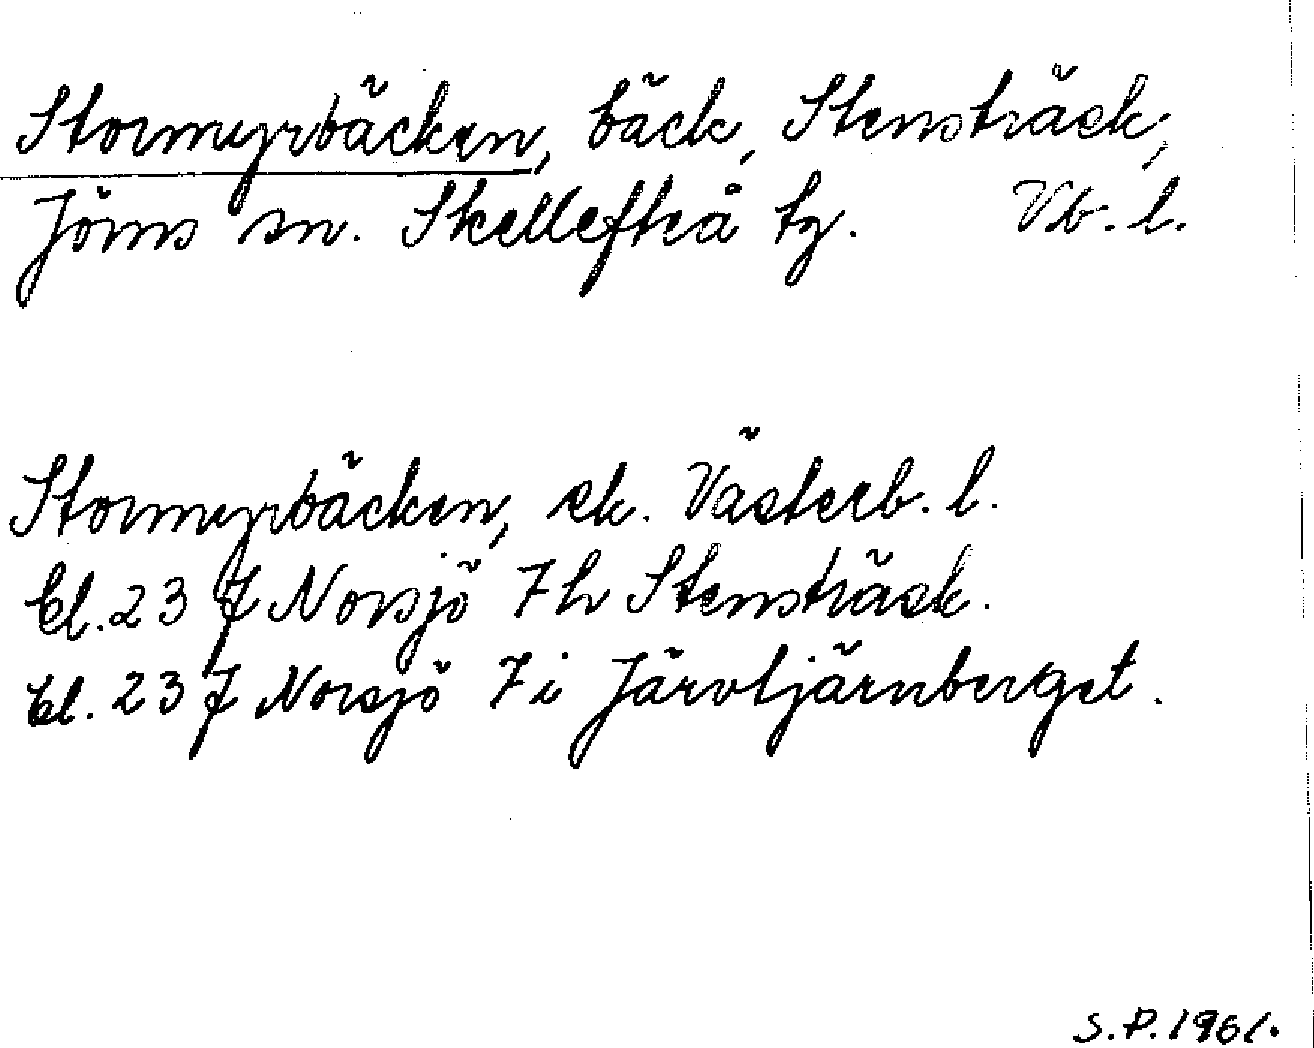 Stormyrbäcken, bäck, Stensträsk,
Jörns sn. Skellefteå tg. Vb. l.
Stormyrbäcken, ek. Västerb. l.
bl. 23 J Norsjö 7 h Stensträsk.
bl. 23 J Norsjö 7 i Järvtjärnberget.
S. P. 1961.